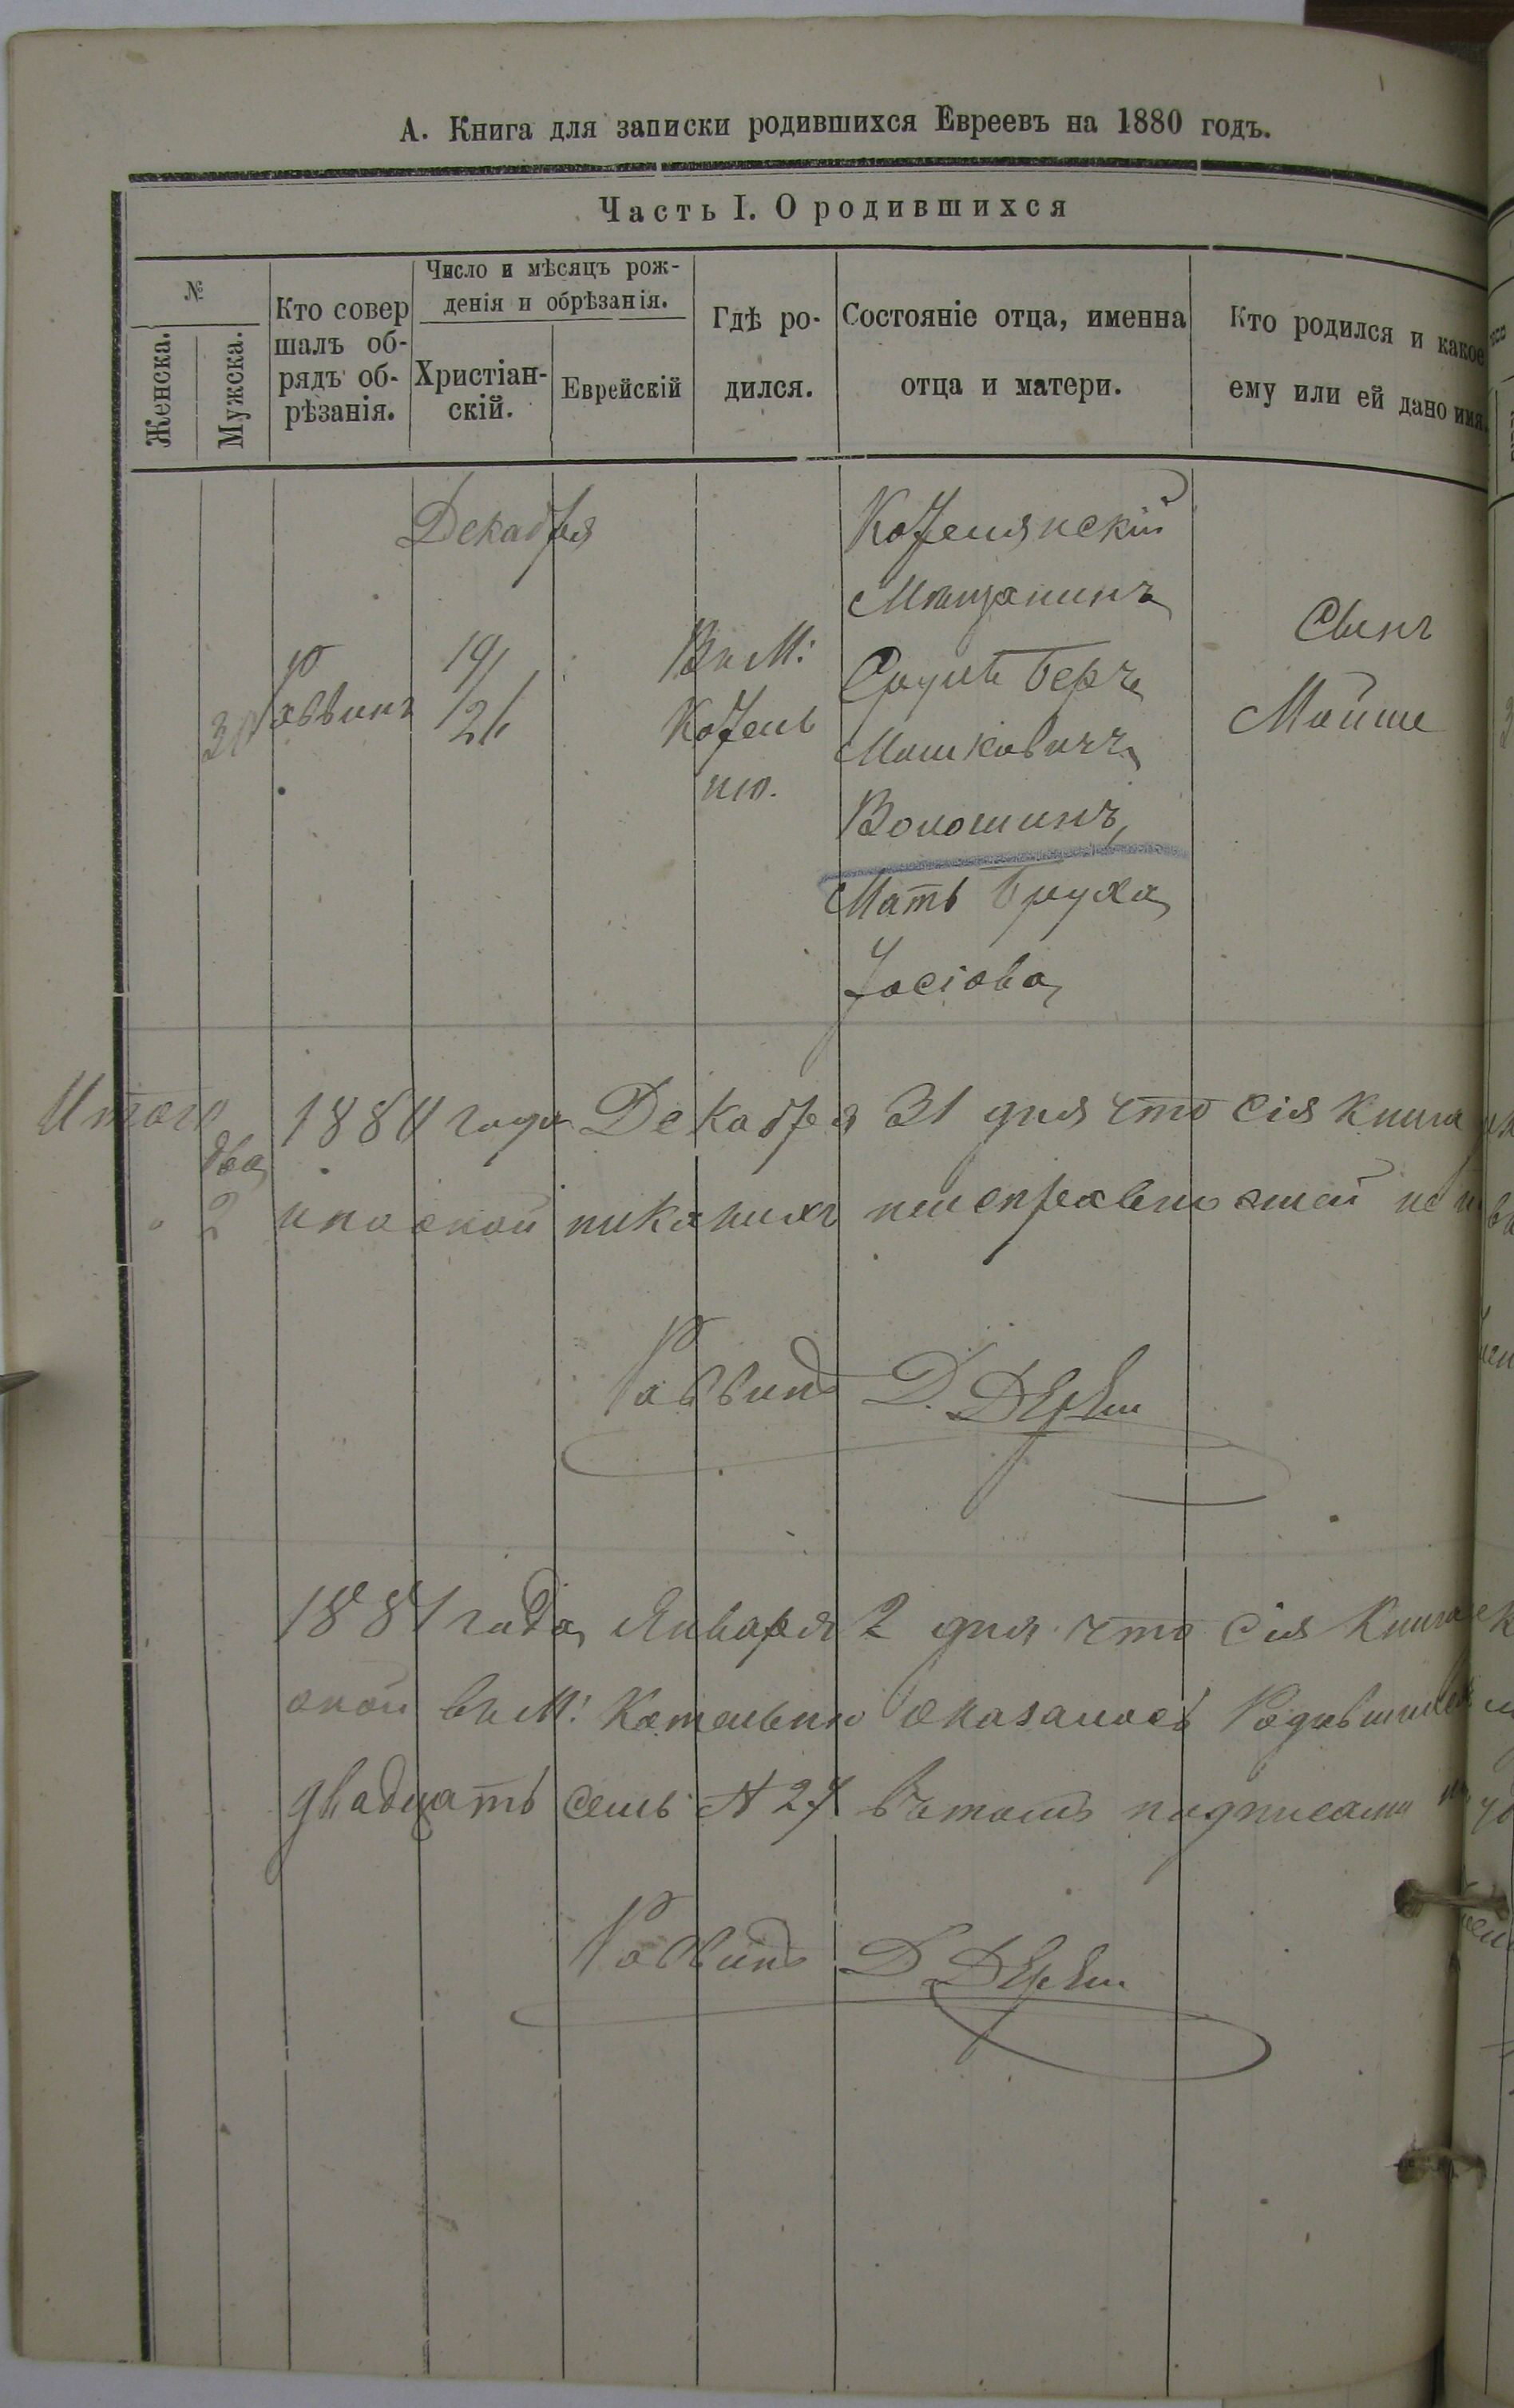 А. Книга для записки родившихся Евреевъ на 1880 годъ.
Часть I. О родившихся
№
Женска.
Мужска.
Кто совер
шалъ об-
рядъ об-
рѣзанія.
Число и мѣсяцъ рож-
денія и обрѣзанія.
Христіан-
скій.
Еврейскій
Гдѣ ро-
дился.
Состояніе отца, именна
отца и матери.
Кто родился и какое
ему или ей дано имя.
Декабря
Раввинъ
19/
/26
Въ М:
Котель
ню.
Котелянскій
Мѣщанинъ
Сруль Беръ
Мошковичъ
Волошинъ
Мать Бруха
Іосіова
Сынъ
Мойше
Итого
два
2
1880 года Декабря 31 дня что сія книга
никакихъ неисправностей не
Раввинъ Д.
1881 года Января 2 дня что сія Книга
оной въ М: Котельню оказалось Родившихся
двадцать семь № 27 въ томъ
Раввинъ Д